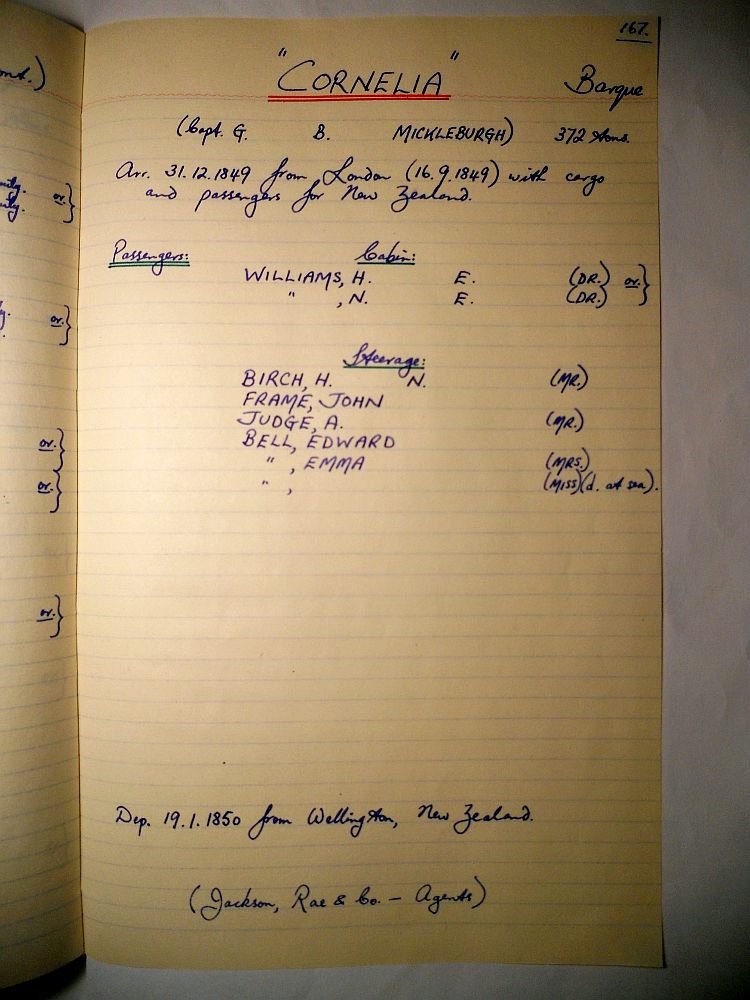 167.
"CORNELIA" Barque
(Capt. G. B. MICKLEBURGH) 372 tons.
Arr. 31.12.1849 from London (16.9.1849) with cargo
and passengers for New Zealand.
Passengers: Cabin:
WILLIAMS, H. E. (DR.) or.}
" , N. E. (DR.)
Steerage:
BIRCH, H. N. (MR.)
FRAME, JOHN
JUDGE, A. (MR.)
BELL, EDWARD
" , EMMA (MRS.)
" , (MISS)(d. at sea).
Dep. 19.1.1850 from Wellington, New Zealand.
(Jackson, Rae & Co. – Agents)
or.}
or.}
or.}
or.}
or.}